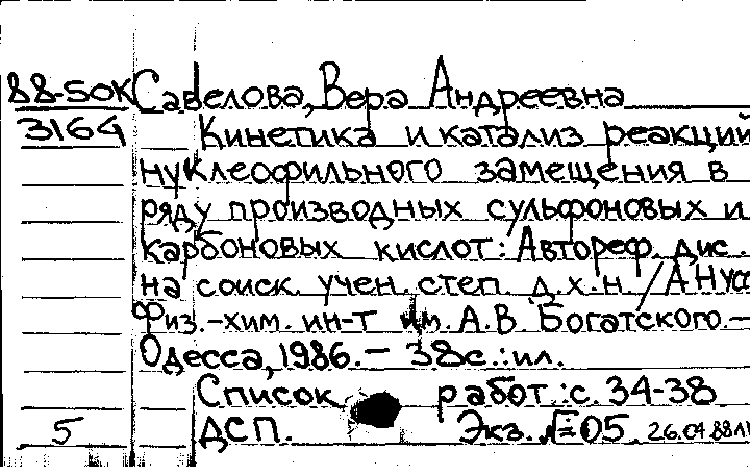 88-50К Савелова, Вера Андреевна
3164 Кинетика и катализ реакций
нуклеофильного замещения в
ряду производных сульфоновых и
карбоновых кислот: Автореф. дис.
на соиск. учен. степ. д.х.н. / АН УСС
Физ.-хим. ин-т им. А.В. Богатского.-
Одесса, 1986.- 38с.: ил.
Список работ: с. 34-38
5 ДСП. Экз. №=05. 26.04.88